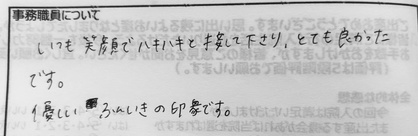 事務職員について
いつも笑顔でハキハキと接して下さり、とても良かった
です。
優しい ふんいきの印象です。